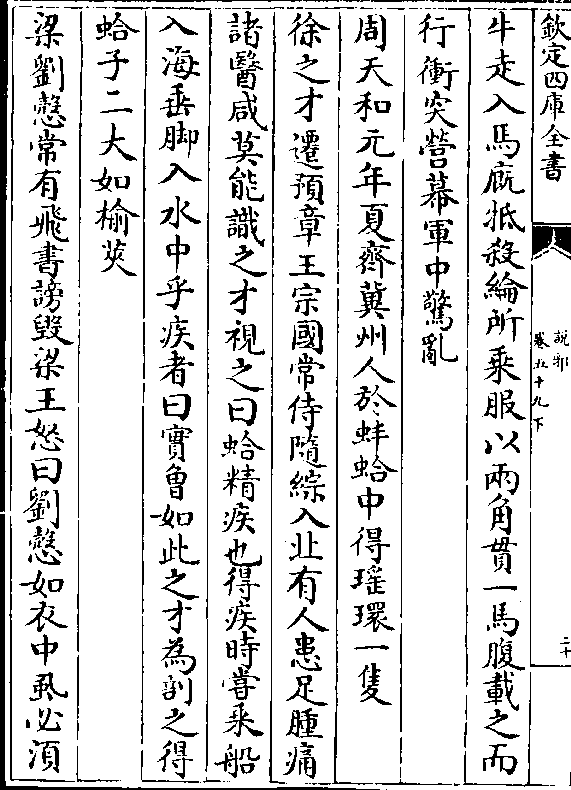 欽定四庫全書
說郛
卷五十九下
二十
牛走入馬廐抵殺綸所乗服以兩角貫一馬腹載之而
行衝突營幕軍中驚亂
周天和元年夏齊冀州人於蚌蛤中得瑤環一隻
徐之才遷預章王宗國常侍隨綜入北有人患足腫痛
諸醫咸莫能識之才視之曰蛤精疾也得疾時嘗乗船
入海垂脚入水中乎疾者曰實曾如此之才為剖之得
蛤子二大如榆莢
梁劉慤常有飛書謗毀梁王怒曰劉慤如衣中虱必湏